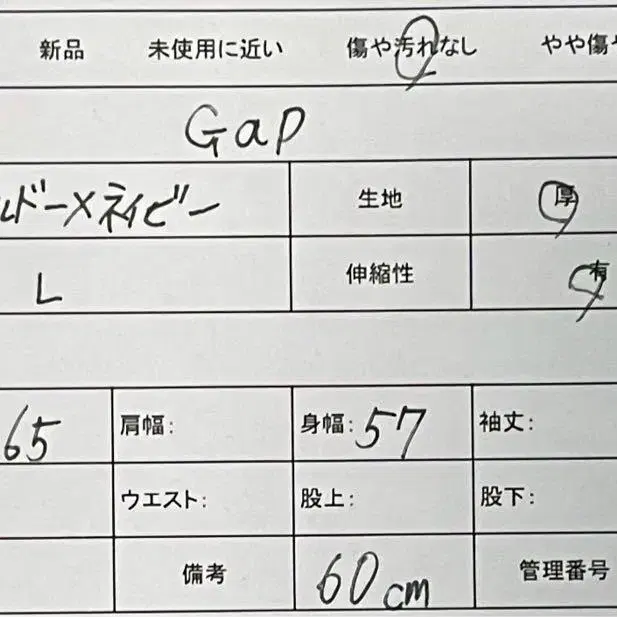 新品 未使用に近い 傷や汚れなし やや傷や
Gap
ルドー×ネイビー 生地 厚
L 伸縮性 有
65 肩幅: 身幅: 57 袖丈:
ウエスト: 股上: 股下:
備考 60cm 管理番号